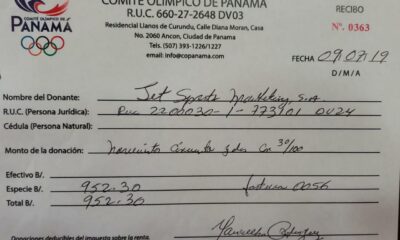 COMITÉ OLÍMPICO DE PANAMÁ
R.U.C. 660-27-2648 DV03
Residencial Llanos de Curundu, Calle Diana Moran, Casa
No. 2060 Ancon, Ciudad de Panama
Tel: (507) 393-1226/1227
email: info@copanama.com
COMITÉ OLÍMPICO DE
PANAMÁ
RECIBO
Nº. 0363
FECHA 09/07/19
D/M/A
Nombre del Donante: Jet Sports Marketing, S.A
R.U.C. (Persona Jurídica): Ruc 2200030-1-773701 DV24
Cédula (Persona Natural):
Monto de la donación: cincuenta y dos con 30/100
Efectivo B/.
Especie B/. 952.30 factura 0056
Total B/. 952.30
Donaciones deducibles del impuesto sobre la renta.